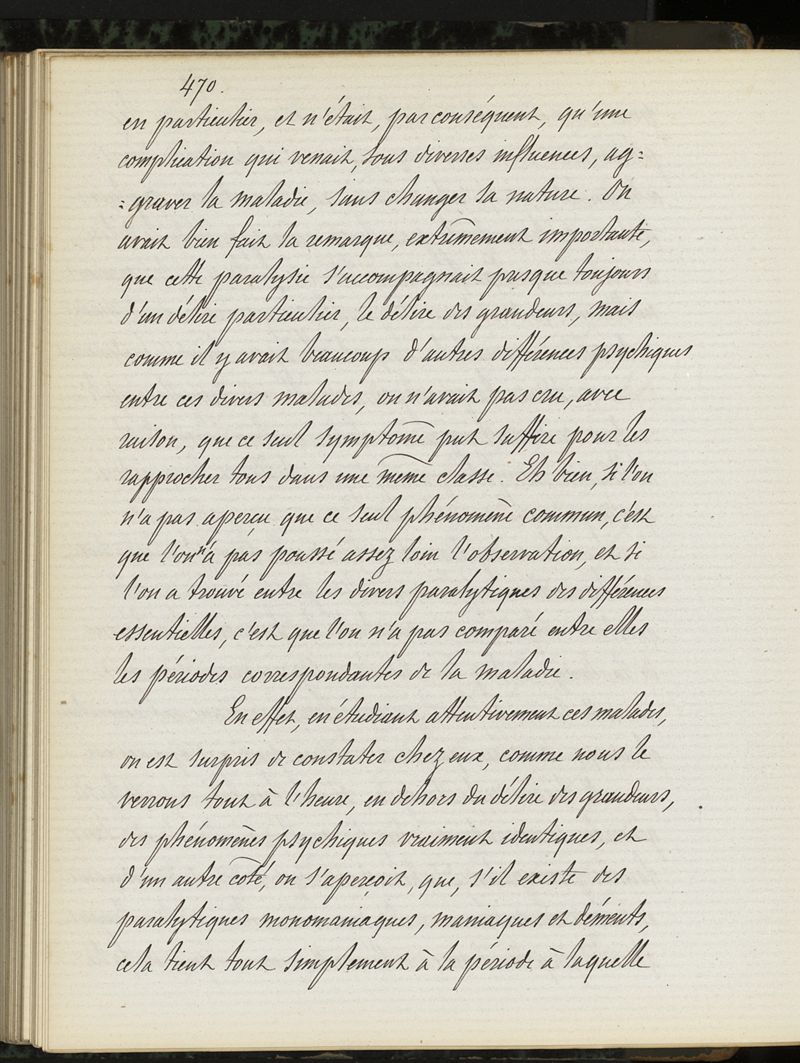 470.
en particulier, et n'était, par conséquent, qu'une
complication qui venait, sous diverses influences, ag=
=graver la maladie, sans changer sa nature. On
avait bien fait la remarque, extrêmement importante,
que cette paralysie s'accompagnait presque toujours
d'un délire particulier, le délire des grandeurs, mais
comme il y avait beaucoup d'autres différences psychiques
entre ces divers malades, on n'avait pas cru, avec
raison, que ce seul symptome put suffire pour les
rapprocher tous dans une même classe. Eh bien, si l'on
n'a pas aperçu que ce seul phénomène commun, c'est
que l'on n'a pas poussé assez loin l'observation, et si
l'on a trouvé entre les divers paralytiques des différences
essentielles, c'est que l'on n'a pas comparé entre elles
les périodes correspondantes de la maladie.
En effet, en étudiant attentivement ces malades,
on est surpris de constater chez eux, comme nous le
verrons tout à l'heure, en dehors du délire des grandeurs,
des phénomènes psychiques vraiment identiques, et
d'un autre coté, on s'aperçoit, que, s'il existe des
paralytiques monomaniaques, maniaques et déments,
cela tient tout simplement à la période à laquelle